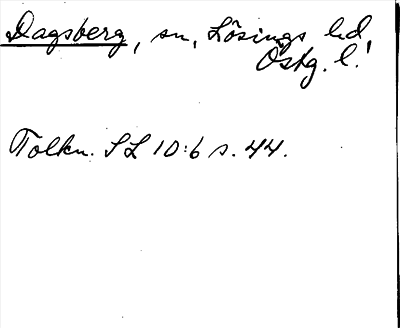 Dagsberg, sn, Lösings hd,
Östg. l.
Tolkn. SL 10:6 s. 44.